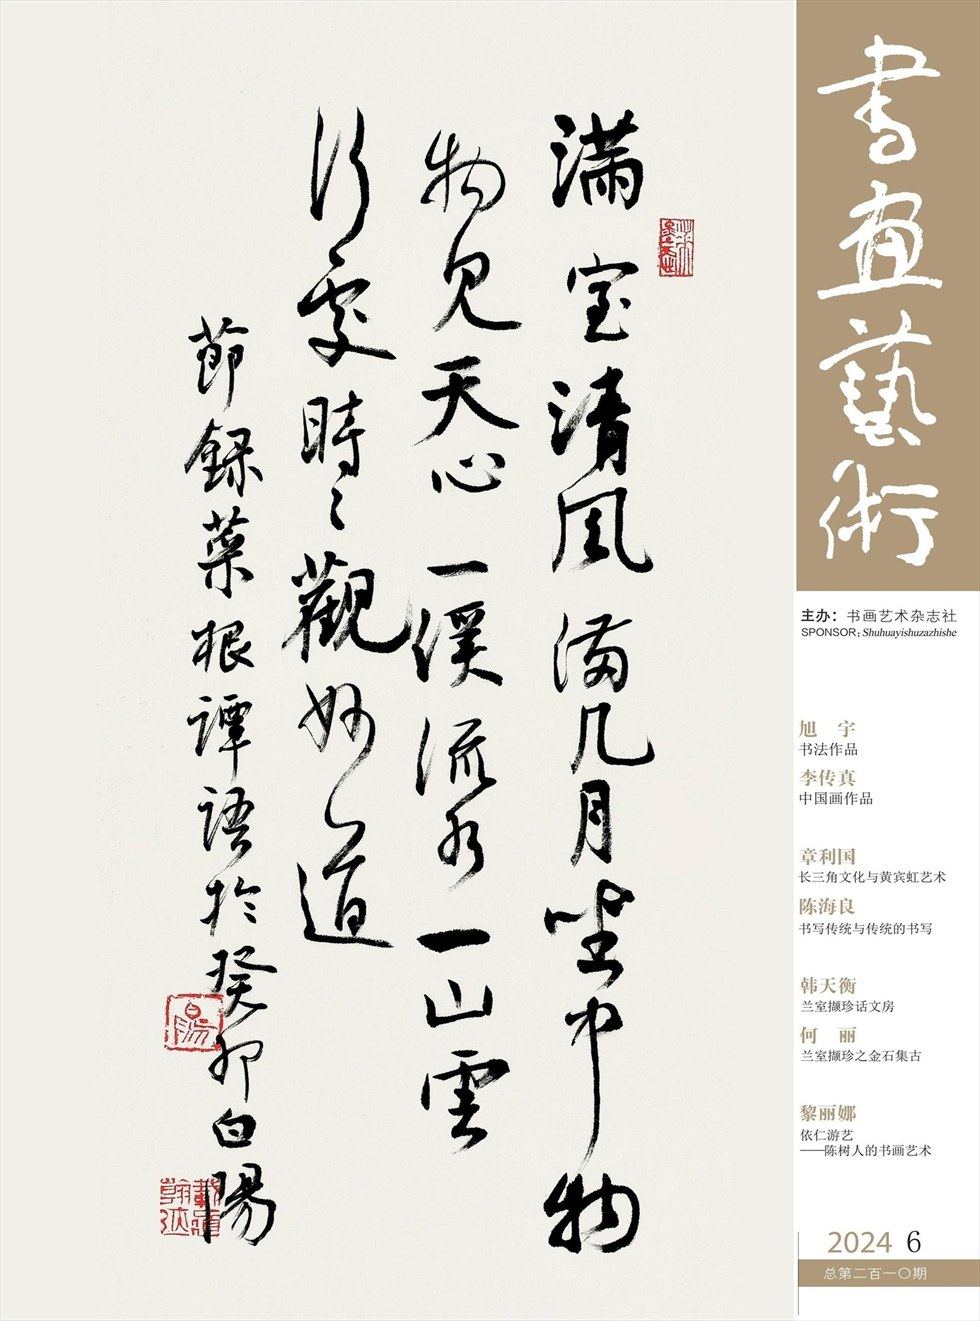 滿室清風滿几月坐中物
物見天心一溪流水一山雲
行處時時觀妙道
節錄菜根譚語於癸卯白陽
書画藝術
主办：书画艺术杂志社
SPONSOR：Shuhuayishuzazhishe
旭 宇
书法作品
李传真
中国画作品
章利国
长三角文化与黄宾虹艺术
陈海良
书写传统与传统的书写
韩天衡
兰室撷珍话文房
何 丽
兰室撷珍之金石集古
黎丽娜
依仁游艺
——陈树人的书画艺术
2024 6
总第二百一〇期